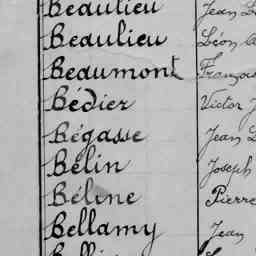 Beaulieu Jean
Beaulieu Léon
Beaumont François
Bédier Victor J
Bégasse Jean L
Bélin Joseph
Béline Pierre
Bellamy Jean